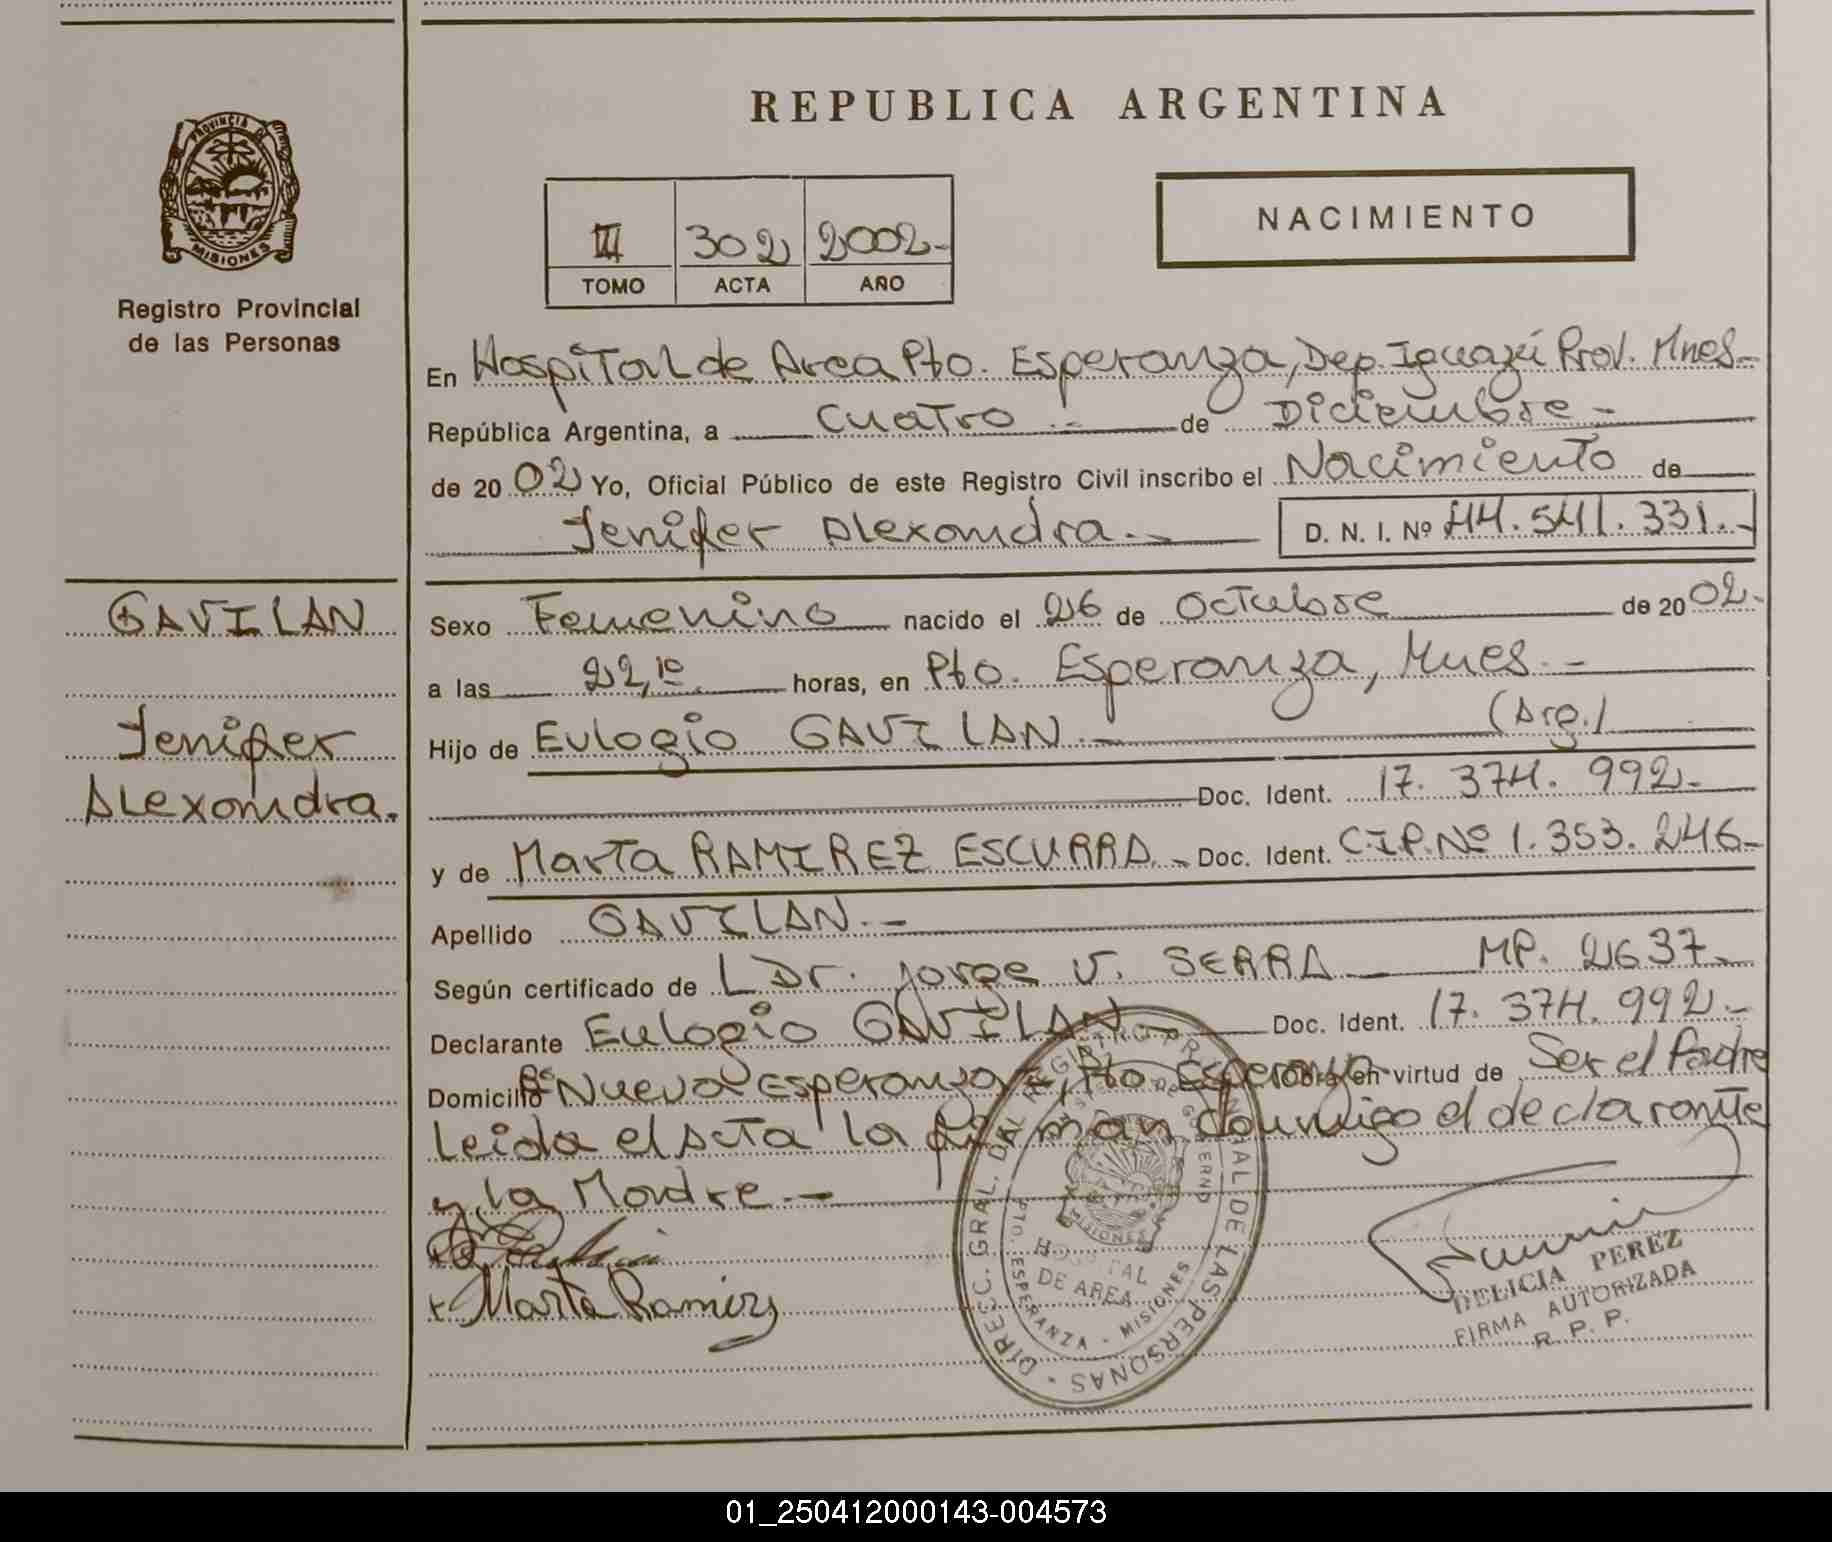 REPUBLICA ARGENTINA
PROVINCIA DE
MISIONES
Registro Provincial
de las Personas
III 302 2002-
TOMO ACTA AÑO
NACIMIENTO
En Hospital de Area Pto. Esperanza, Dep. Iguazú Prov. Mnes-
República Argentina, a cuatro.- de Diciembre-
de 20 02 Yo, Oficial Público de este Registro Civil inscribo el Nacimiento de
Jenifer Alexandra.- D. N. I. Nº 44.541.331.-
GAVILAN
Jenifer
Alexandra.
Sexo Femenino nacido el 26 de Octubre de 20 02-
a las 22,10 horas, en Pto. Esperanza, Mnes.-
Hijo de Eulogio GAVILAN.- (Arg.)
Doc. Ident. 17.374.992-
y de Marta RAMIREZ ESCURRA.- Doc. Ident. C.I.P.Nº 1.353.246-
Apellido GAVILAN.-
Según certificado de L Dr. Jorge V. SERRA MP. 2637-
Declarante Eulogio GAVILAN- Doc. Ident. 17.374.992.-
Domicilio Bº Nueva Esperanza-, Pto Esperanza Obra en virtud de Ser el Padre
Leida el Acta la firman conmigo el declarante
y la Madre.-
Marta Ramirez
DIRECC. GRAL. DEL REGISTRO PROVINCIAL DE LAS PERSONAS
DE GOBIERNO
MISIONES
HOSPITAL
DE AREA
PTO. ESPERANZA - MISIONES
DELICIA PEREZ
FIRMA AUTORIZADA
R. P. P.
01_250412000143-004573